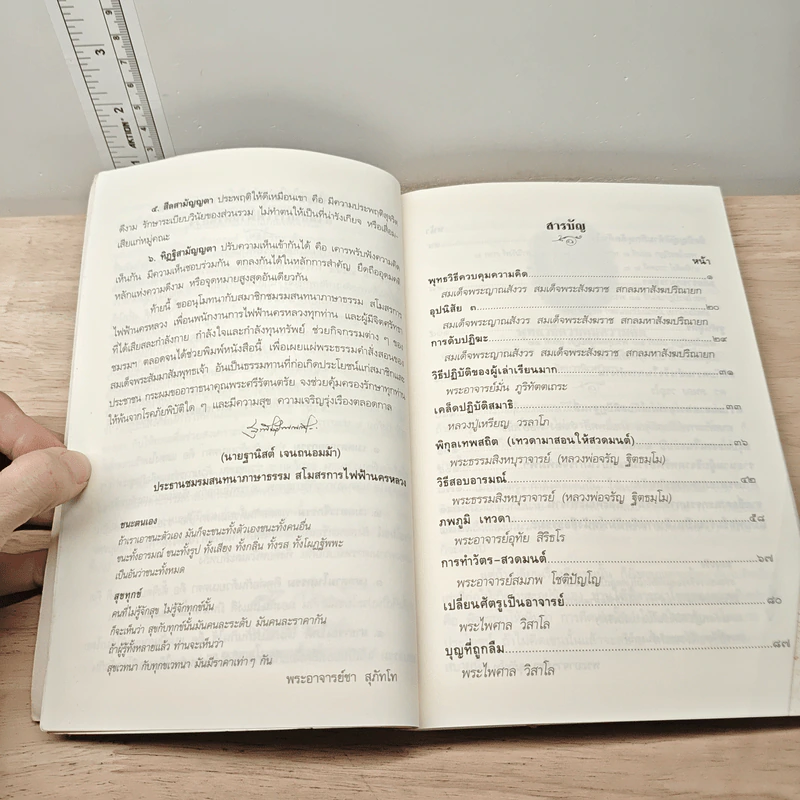 ๕. สีลสามัญญตา ประพฤติให้ดีเหมือนเขา คือ มีความประพฤติสุจริต
ดีงาม รักษาระเบียบวินัยของส่วนรวม ไม่ทำตนให้เป็นที่น่ารังเกียจ หรือเสื่อม-
เสียแก่หมู่คณะ
๖. ทิฏฐิสามัญญตา ปรับความเห็นเข้ากันได้ คือ เคารพรับฟังความคิด
เห็นกัน มีความเห็นชอบร่วมกัน ตกลงกันได้ในหลักการสำคัญ ยึดถืออุดมคติ
หลักแห่งความดีงาม หรือจุดหมายสูงสุดอันเดียวกัน
ท้ายนี้ ขออนุโมทนากับสมาชิกชมรมสนทนาภาษาธรรม สโมสรการ
ไฟฟ้านครหลวง เพื่อนพนักงานการไฟฟ้านครหลวงทุกท่าน และผู้มีจิตศรัทธา
ที่ได้เสียสละกำลังกาย กำลังใจและกำลังทุนทรัพย์ ช่วยกิจกรรมต่าง ๆ ของ
ชมรมฯ ตลอดจนได้ช่วยพิมพ์หนังสือนี้ เพื่อเผยแผ่พระธรรมคำสั่งสอนของ
สมเด็จพระสัมมาสัมพุทธเจ้า อันเป็นธรรมทานที่ก่อเกิดประโยชน์แก่สมาชิกและ
ประชาชน กระผมขออาราธนาคุณพระศรีรัตนตรัย จงช่วยคุ้มครองรักษาทุกท่าน
ให้พ้นจากโรคภัยพิบัติใด ๆ และมีความสุข ความเจริญรุ่งเรืองตลอดกาล
(นายฐานิสต์ เจนถนอมม้า)
ประธานชมรมสนทนาภาษาธรรม สโมสรการไฟฟ้านครหลวง
ชนะตนเอง
ถ้าเราเอาชนะตัวเอง มันก็จะชนะทั้งตัวเองชนะทั้งคนอื่น
ชนะทั้งอารมณ์ ชนะทั้งรูป ทั้งเสียง ทั้งกลิ่น ทั้งรส ทั้งโผฏฐัพพะ
เป็นอันว่าชนะทั้งหมด
สุขทุกข์
คนที่ไม่รู้จักสุข ไม่รู้จักทุกข์นั้น
ก็จะเห็นว่า สุขกับทุกข์นั้นมันคนละระดับ มันคนละราคากัน
ถ้าผู้รู้ทั้งหลายแล้ว ท่านจะเห็นว่า
สุขเวทนา กับทุกขเวทนา มันมีราคาเท่า ๆ กัน
พระอาจารย์ชา สุภัทโท
สารบัญ
หน้า
พุทธวิธีควบคุมความคิด ๑
สมเด็จพระญาณสังวร สมเด็จพระสังฆราช สกลมหาสังฆปริณายก
อุปนิสัย ๓ ๒๐
สมเด็จพระญาณสังวร สมเด็จพระสังฆราช สกลมหาสังฆปริณายก
การดับปฏิฆะ ๒๔
สมเด็จพระญาณสังวร สมเด็จพระสังฆราช สกลมหาสังฆปริณายก
วิธีปฏิบัติของผู้เล่าเรียนมาก ๓๑
พระอาจารย์มั่น ภูริทัตตเถระ
เคล็ดปฏิบัติสมาธิ ๓๓
หลวงปู่เหรียญ วรลาโภ
พิกุลเทพสถิต (เทวดามาสอนให้สวดมนต์) ๓๖
พระธรรมสิงหบุราจารย์ (หลวงพ่อจรัญ ฐิตธมฺโม)
วิธีสอบอารมณ์ ๔๒
พระธรรมสิงหบุราจารย์ (หลวงพ่อจรัญ ฐิตธมฺโม)
ภพภูมิ เทวดา ๕๘
พระอาจารย์อุทัย สิริธโร
การทำวัตร-สวดมนต์ ๖๗
พระอาจารย์สมภพ โชติปัญโญ
เปลี่ยนศัตรูเป็นอาจารย์ ๘๐
พระไพศาล วิสาโล
บุญที่ถูกลืม ๘๗
พระไพศาล วิสาโล